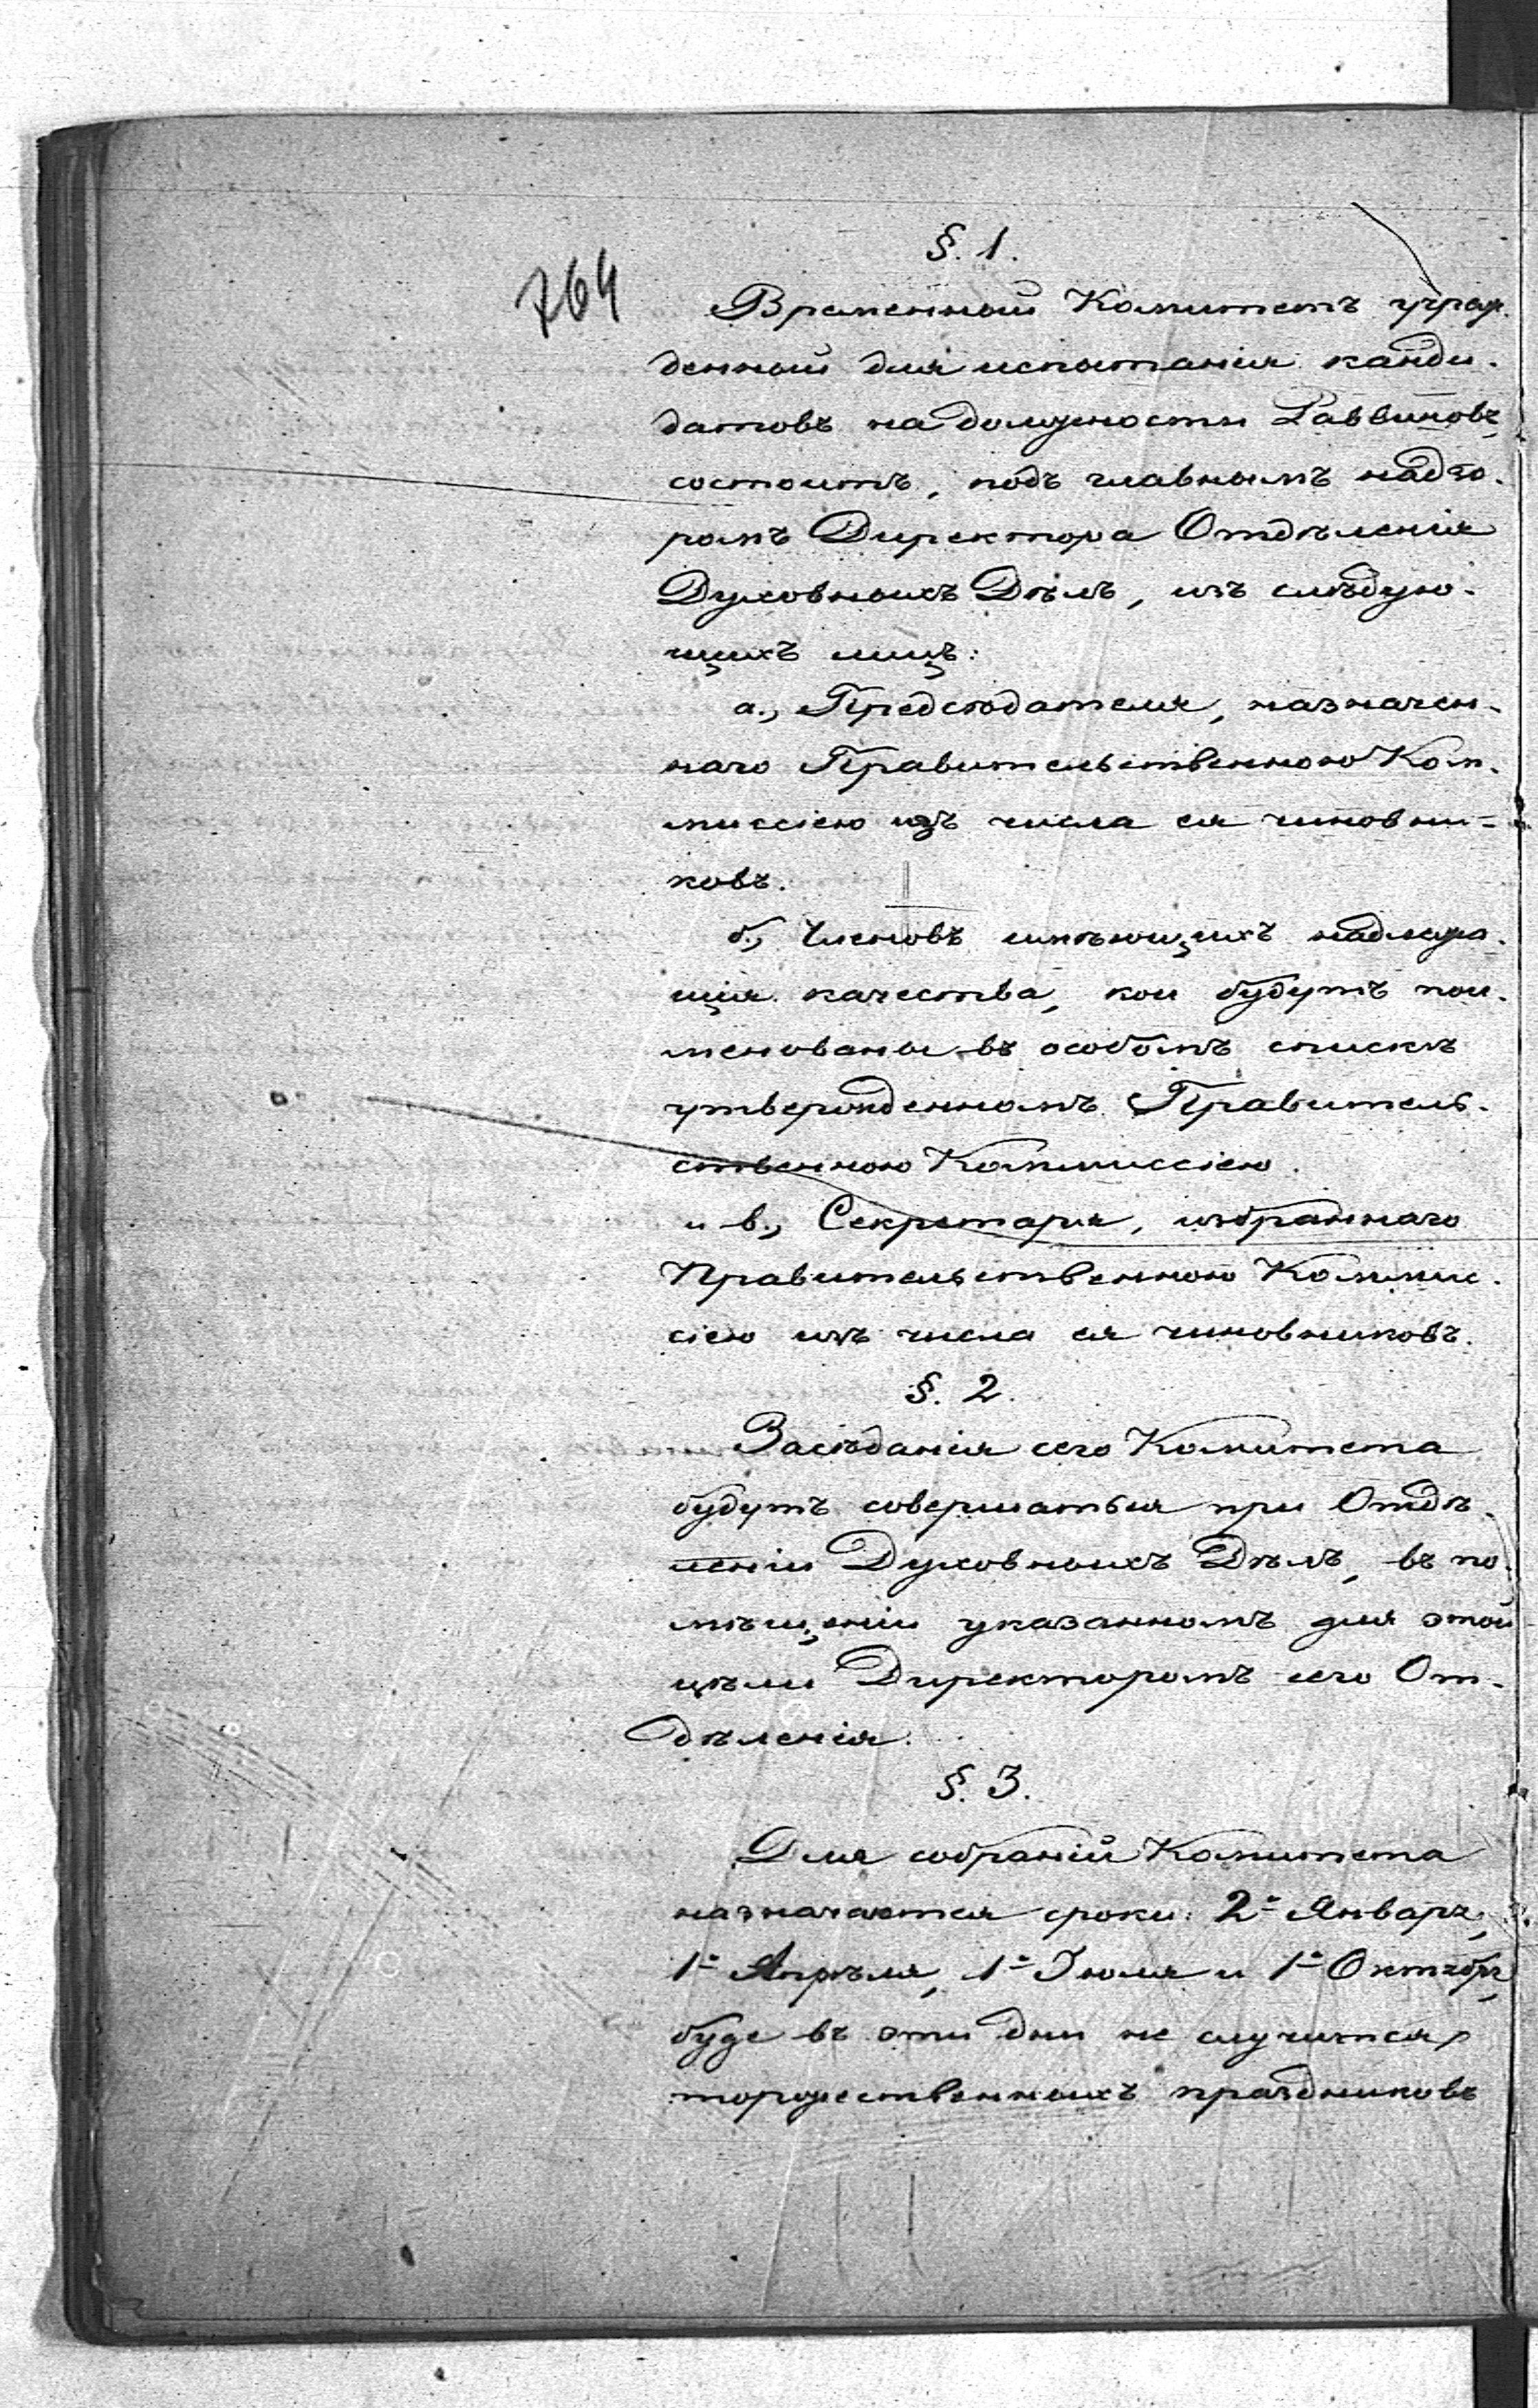 764
§. 1.
Временный Комитетъ учреж-
денный для испытанія канди-
датовъ на должности Раввиновъ,
состоитъ, подъ главнымъ надзо-
ромъ Директора Отдѣленія
Духовныхъ Дѣлъ, изъ слѣдую-
щихъ лицъ:
а., Предсѣдателя, назначен-
наго Правительственною Ком-
миссіею изъ числа ея чиновни-
ковъ.
б., Членовъ имѣющихъ надлежа-
щія качества, кои будутъ пои-
менованы въ особомъ спискѣ
утвержденномъ Правитель-
ственною Коммиссіею.
и в., Секретаря, избраннаго
Правительственною Коммис-
сіею изъ числа ея чиновниковъ.
§. 2.
Засѣданія сего Комитета
будутъ совершаться при Отдѣ-
леніи Духовныхъ Дѣлъ, въ по-
мѣщеніи указанномъ для этой
цѣли Директоромъ сего От-
дѣленія.
§. 3.
Для собраній Комитета
назначаются сроки: 2° Января,
1° Апрѣля, 1° Іюля и 1° Октября,
буде въ эти дни не случится
торжественныхъ праздниковъ